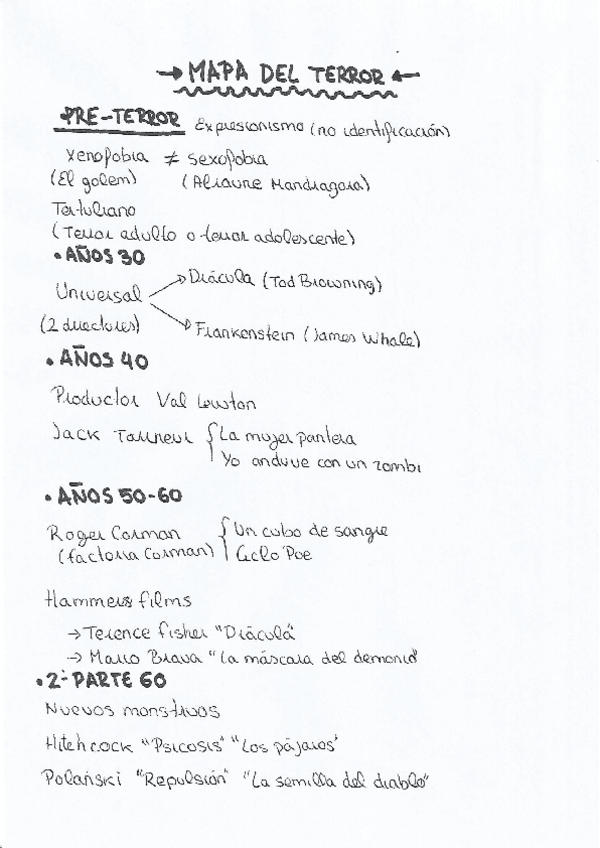 → MAPA DEL TERROR ←
PRE-TERROR Expresionismo (no identificación)
Xenofobia ≠ sexofobia
(El golem) (Aliaune Mandragora)
Tertuliano
(Terror adulto o terror adolescente)
• AÑOS 30
Universal → Drácula (Tod Browning)
(2 directores) → Frankenstein (James Whale)
• AÑOS 40
Productor Val Lewton
Jack Tourneur { La mujer pantera
Yo anduve con un zombi
• AÑOS 50-60
Roger Corman { Un cubo de sangre
(factoria Corman) Ciclo Poe
Hammers films
→ Terence fisher "Drácula"
→ Mario Brava "La máscara del demonio"
• 2ª PARTE 60
Nuevos monstruos
Hitchcock "Psicosis" "Los pájaros"
Polański "Repulsión" "La semilla del diablo"